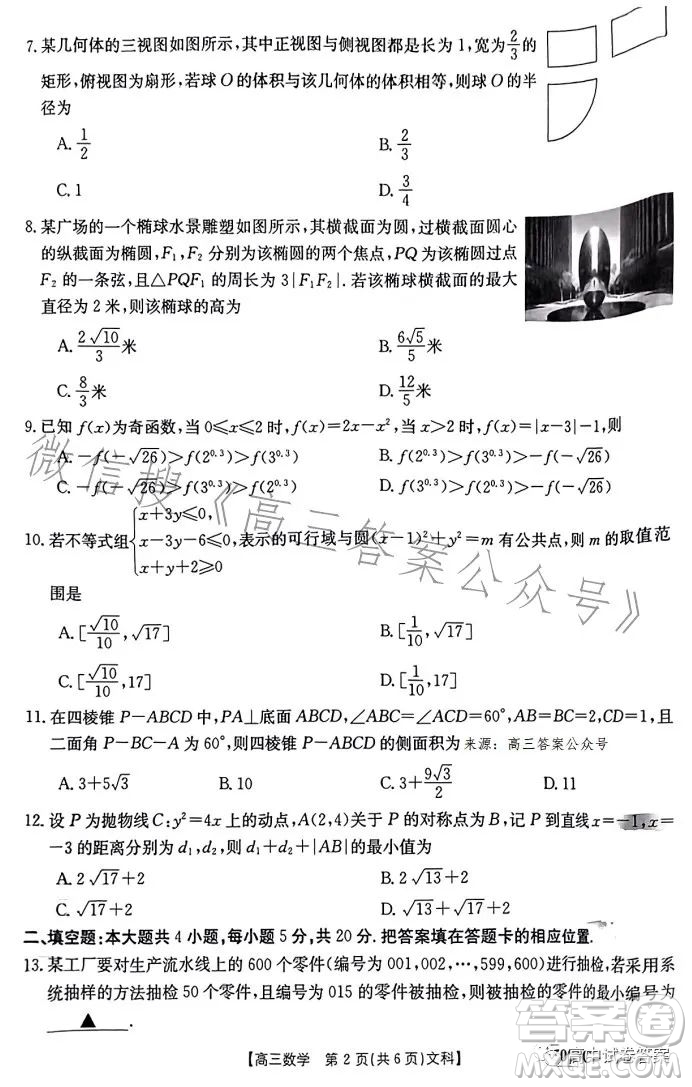 7. 某几何体的三视图如图所示,其中正视图与侧视图都是长为 1,宽为2/3的
矩形,俯视图为扇形,若球 O 的体积与该几何体的体积相等,则球 O 的半
径为
A. 1/2 B. 2/3
C. 1 D. 3/4
8. 某广场的一个椭球水景雕塑如图所示,其横截面为圆,过横截面圆心
的纵截面为椭圆,F₁,F₂ 分别为该椭圆的两个焦点,PQ 为该椭圆过点
F₂ 的一条弦,且△PQF₁ 的周长为 3|F₁F₂|. 若该椭球横截面的最大
直径为 2 米,则该椭球的高为
A. 2√10/3米 B. 6√5/5米
C. 8/3米 D. 12/5米
9. 已知 f(x)为奇函数,当 0≤x≤2 时,f(x)=2x−x²,当 x>2 时,f(x)=|x−3|−1,则
A. −f(−√26)>f(2^0.3)>f(3^0.3) B. f(2^0.3)>f(3^0.3)>−f(−√26)
C. −f(−√26)>f(3^0.3)>f(2^0.3) D. f(3^0.3)>f(2^0.3)>−f(−√26)
10. 若不等式组{x+3y≤0, x−3y−6≤0, x+y+2≥0 表示的可行域与圆(x−1)²+y²=m 有公共点,则 m 的取值范
围是
A. [√10/10,√17] B. [1/10,√17]
C. [√10/10,17] D. [1/10,17]
11. 在四棱锥 P−ABCD 中,PA⊥底面 ABCD,∠ABC=∠ACD=60°,AB=BC=2,CD=1,且
二面角 P−BC−A 为 60°,则四棱锥 P−ABCD 的侧面积为 来源:高三答案公众号
A. 3+5√3 B. 10 C. 3+9√3/2 D. 11
12. 设 P 为抛物线 C:y²=4x 上的动点,A(2,4)关于 P 的对称点为 B,记 P 到直线 x=−1,x=
−3 的距离分别为 d₁,d₂,则 d₁+d₂+|AB|的最小值为
A. 2√17+2 B. 2√13+2
C. √17+2 D. √13+2
二、填空题:本大题共 4 小题,每小题 5 分,共 20 分. 把答案填在答题卡的相应位置.
13. 某工厂要对生产流水线上的 600 个零件(编号为 001,002,…,599,600)进行抽检,若采用系
统抽样的方法抽检 50 个零件,且编号为 015 的零件被抽检,则被抽检的零件的最小编号为
▲ .
【高三数学 第 2 页(共 6 页)文科】
微信搜《高三答案公众号》
答案圈
高中试卷答案